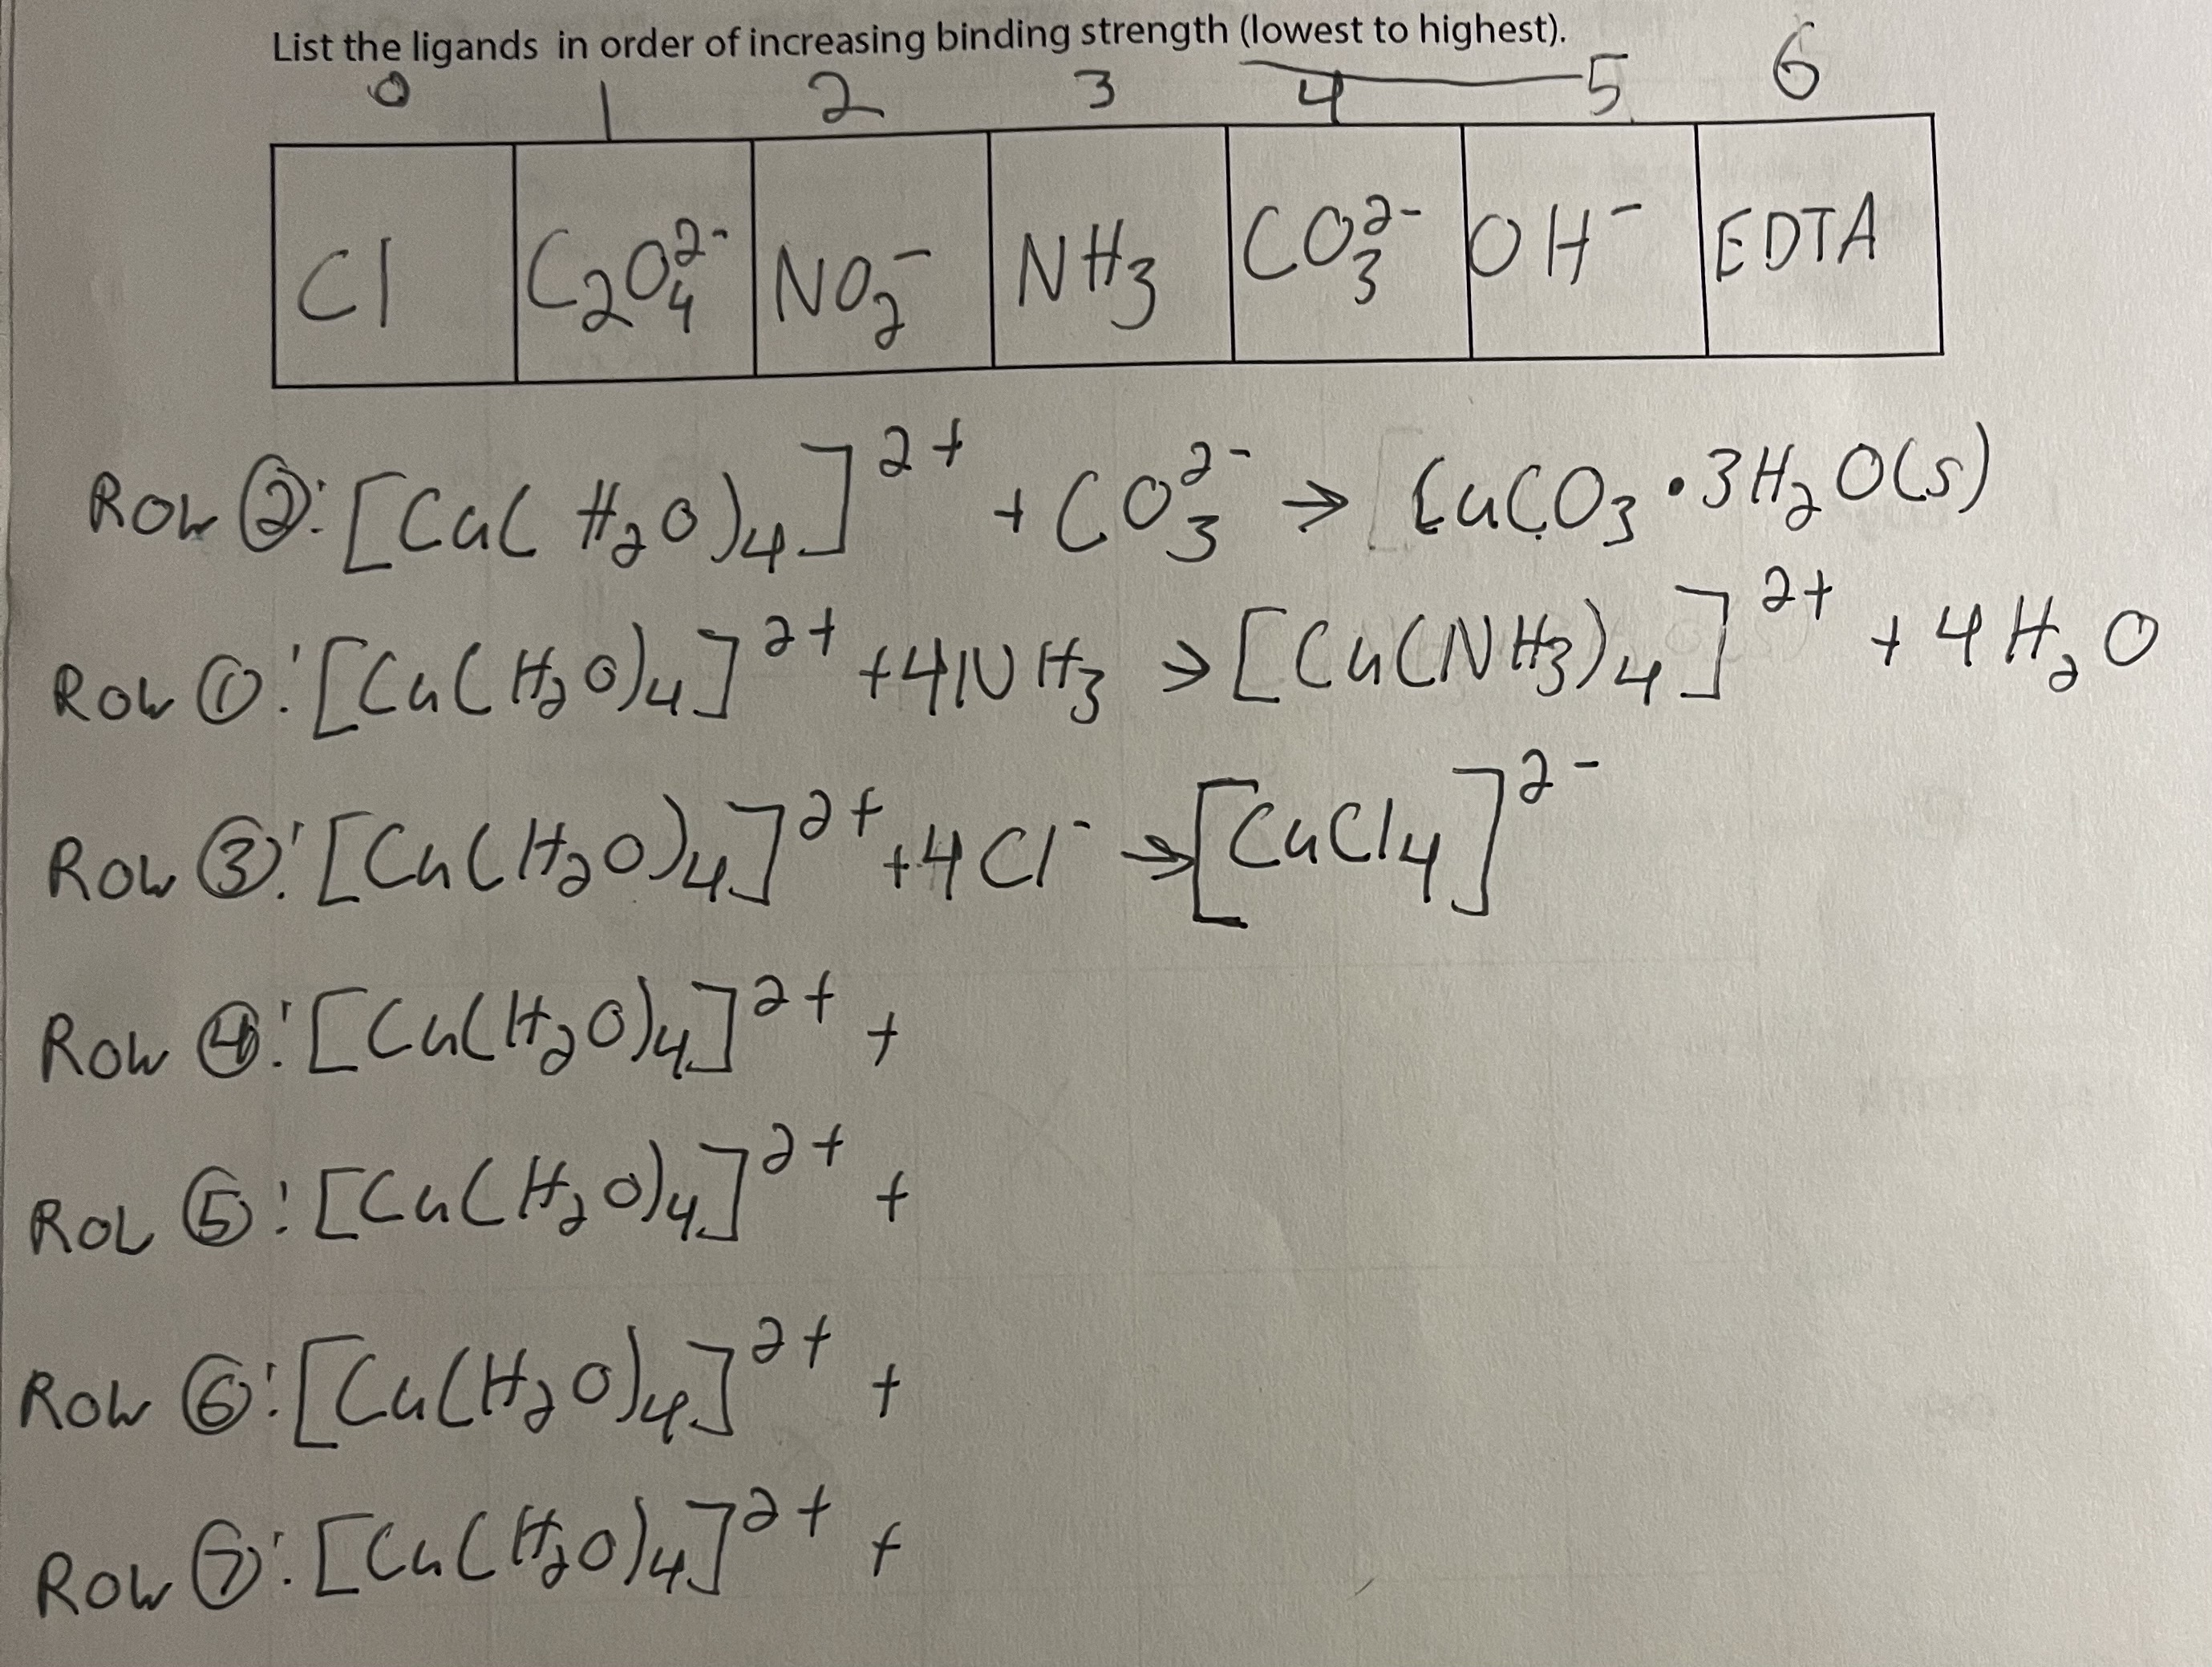 List the ligands in order of increasing binding strength (lowest to highest).
0 1 2 3 4 5 6
Cl C₂O₄²⁻ NO₂⁻ NH₃ CO₃²⁻ OH⁻ EDTA
Row ②: [Cu(H₂O)₄]²⁺ + CO₃²⁻ → CuCO₃ • 3H₂O(s)
Row ①: [Cu(H₂O)₄]²⁺ + 4NH₃ → [Cu(NH₃)₄]²⁺ + 4H₂O
Row ③: [Cu(H₂O)₄]²⁺ + 4Cl⁻ → [CuCl₄]²⁻
Row ④: [Cu(H₂O)₄]²⁺ +
Row ⑤: [Cu(H₂O)₄]²⁺ +
Row ⑥: [Cu(H₂O)₄]²⁺ +
Row ⑦: [Cu(H₂O)₄]²⁺ +